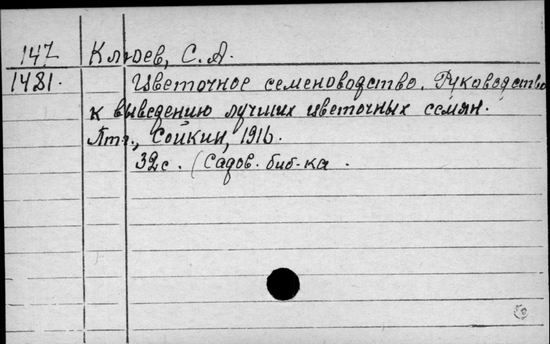 147 Клюев, С. А.
1481. Цветочное семеноводство. Руководство
к выведению лучших цветочных семян.
Птг., Сойкин, 1916.
32с. (Садов. биб-ка.